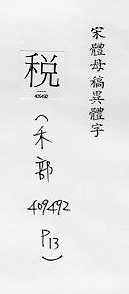 宋體母稿異體字
税
409492
(禾部
409492
P13)